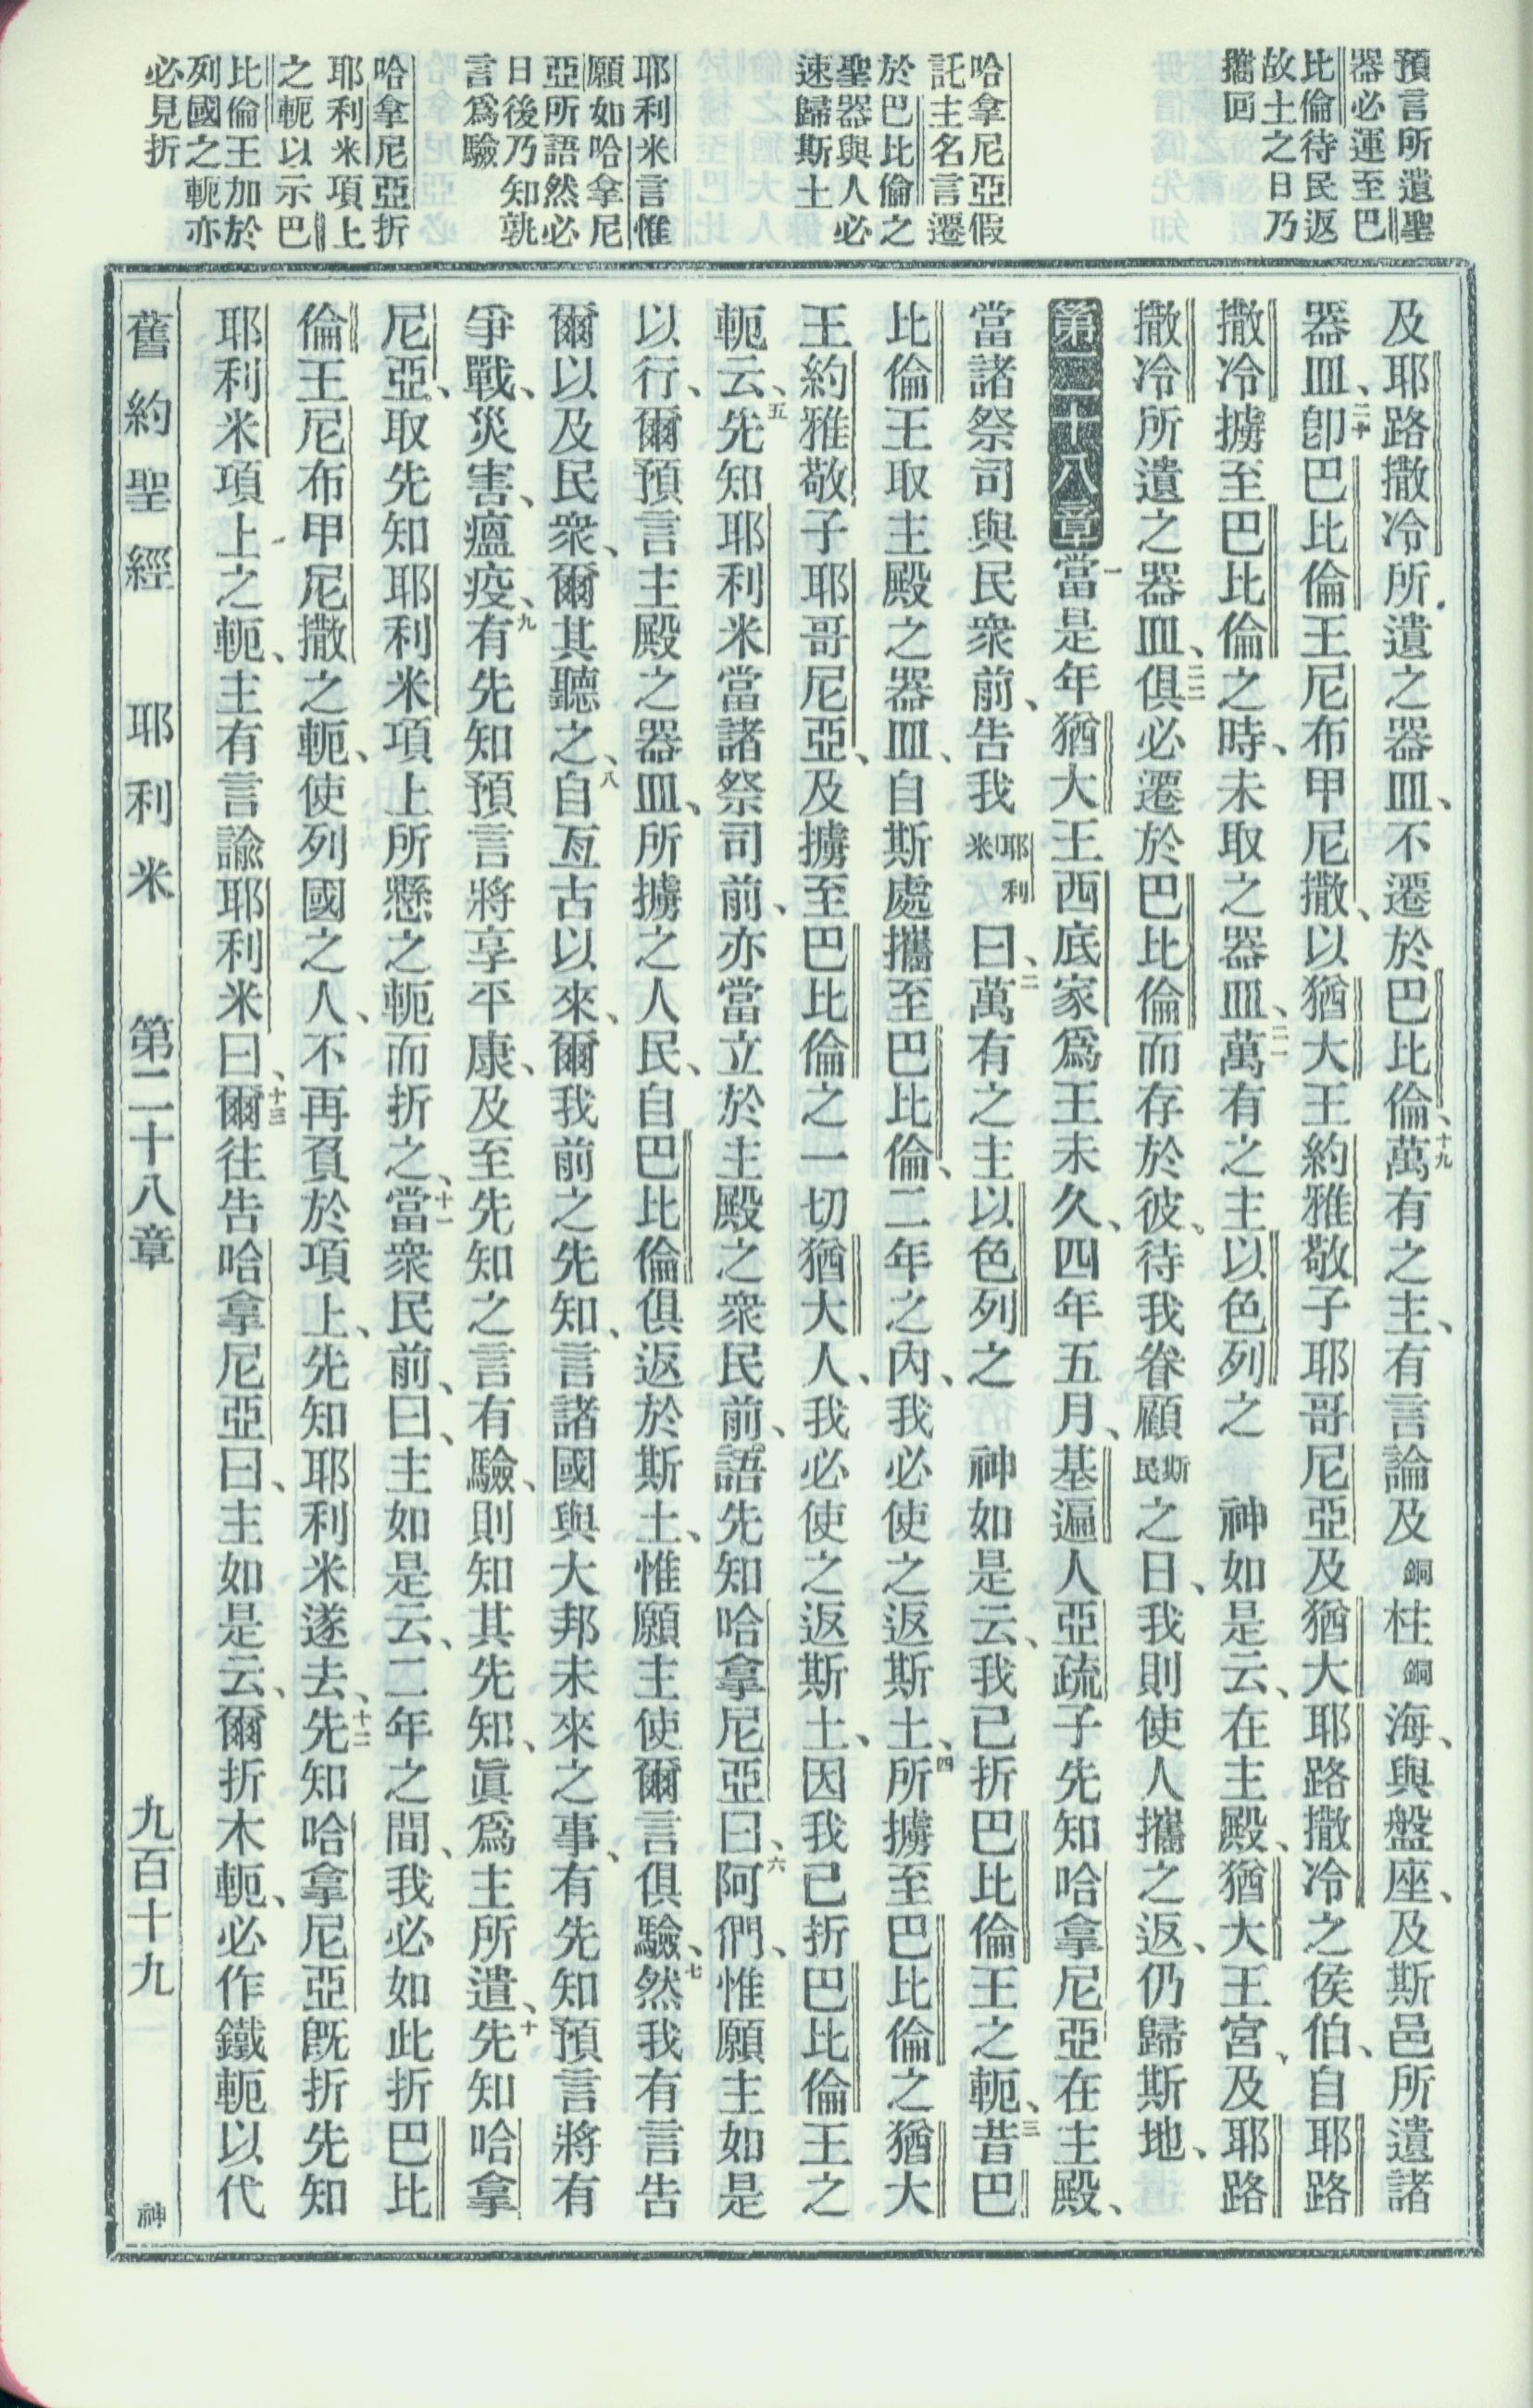 預言所遺聖
器必運至巴
比倫待民返
故土之日乃
攜回
哈拿尼亞假
託主名言遷
於巴比倫之
聖器與人必
速歸斯土
耶利米言惟
願如哈拿尼
亞所語然必
日後乃知孰
言爲驗
哈拿尼亞折
耶利米項上
之軛以示巴
比倫王加於
列國之軛亦
必見折
及耶路撒冷所遺之器皿、不遷於巴比倫、十九萬有之主、有言論及銅柱銅海、與盤座、及斯邑所遺諸
器皿、二十卽巴比倫王尼布甲尼撒、以猶大王約雅敬子耶哥尼亞及猶大耶路撒冷之侯伯、自耶路
撒冷擄至巴比倫之時、未取之器皿、二一萬有之主以色列之 神如是云、在主殿、猶大王宮、及耶路
撒冷所遺之器皿、二二俱必遷於巴比倫而存於彼、待我眷顧斯民之日、我則使人攜之返、仍歸斯地、
第二十八章 一當是年猶大王西底家爲王未久、四年五月、基遍人亞疏子先知哈拿尼亞在主殿、
當諸祭司與民衆前、告我耶利米曰、二萬有之主以色列之 神如是云、我已折巴比倫王之軛、三昔巴
比倫王取主殿之器皿、自斯處攜至巴比倫、二年之內、我必使之返斯土、四所擄至巴比倫之猶大
王約雅敬子耶哥尼亞、及擄至巴比倫之一切猶大人、我必使之返斯土、因我已折巴比倫王之
軛云、五先知耶利米當諸祭司前、亦當立於主殿之衆民前、語先知哈拿尼亞曰、六阿們、惟願主如是
以行、爾預言主殿之器皿、所擄之人民、自巴比倫俱返於斯土、惟願主使爾言俱驗、七然我有言告
爾以及民衆、爾其聽之、八自亙古以來、爾我前之先知、言諸國與大邦未來之事、有先知預言將有
爭戰、災害、瘟疫、九有先知預言將享平康、及至先知之言有驗、則知其先知、眞爲主所遣、十先知哈拿
尼亞、取先知耶利米項上所懸之軛而折之、十一當衆民前、曰、主如是云、二年之間、我必如此折巴比
倫王尼布甲尼撒之軛、使列國之人、不再負於項上、先知耶利米遂去、十二先知哈拿尼亞旣折先知
耶利米項上之軛、主有言諭耶利米曰、十三爾往告哈拿尼亞曰、主如是云、爾折木軛、必作鐵軛以代
舊約聖經 耶利米 第二十八章 九百十九 神